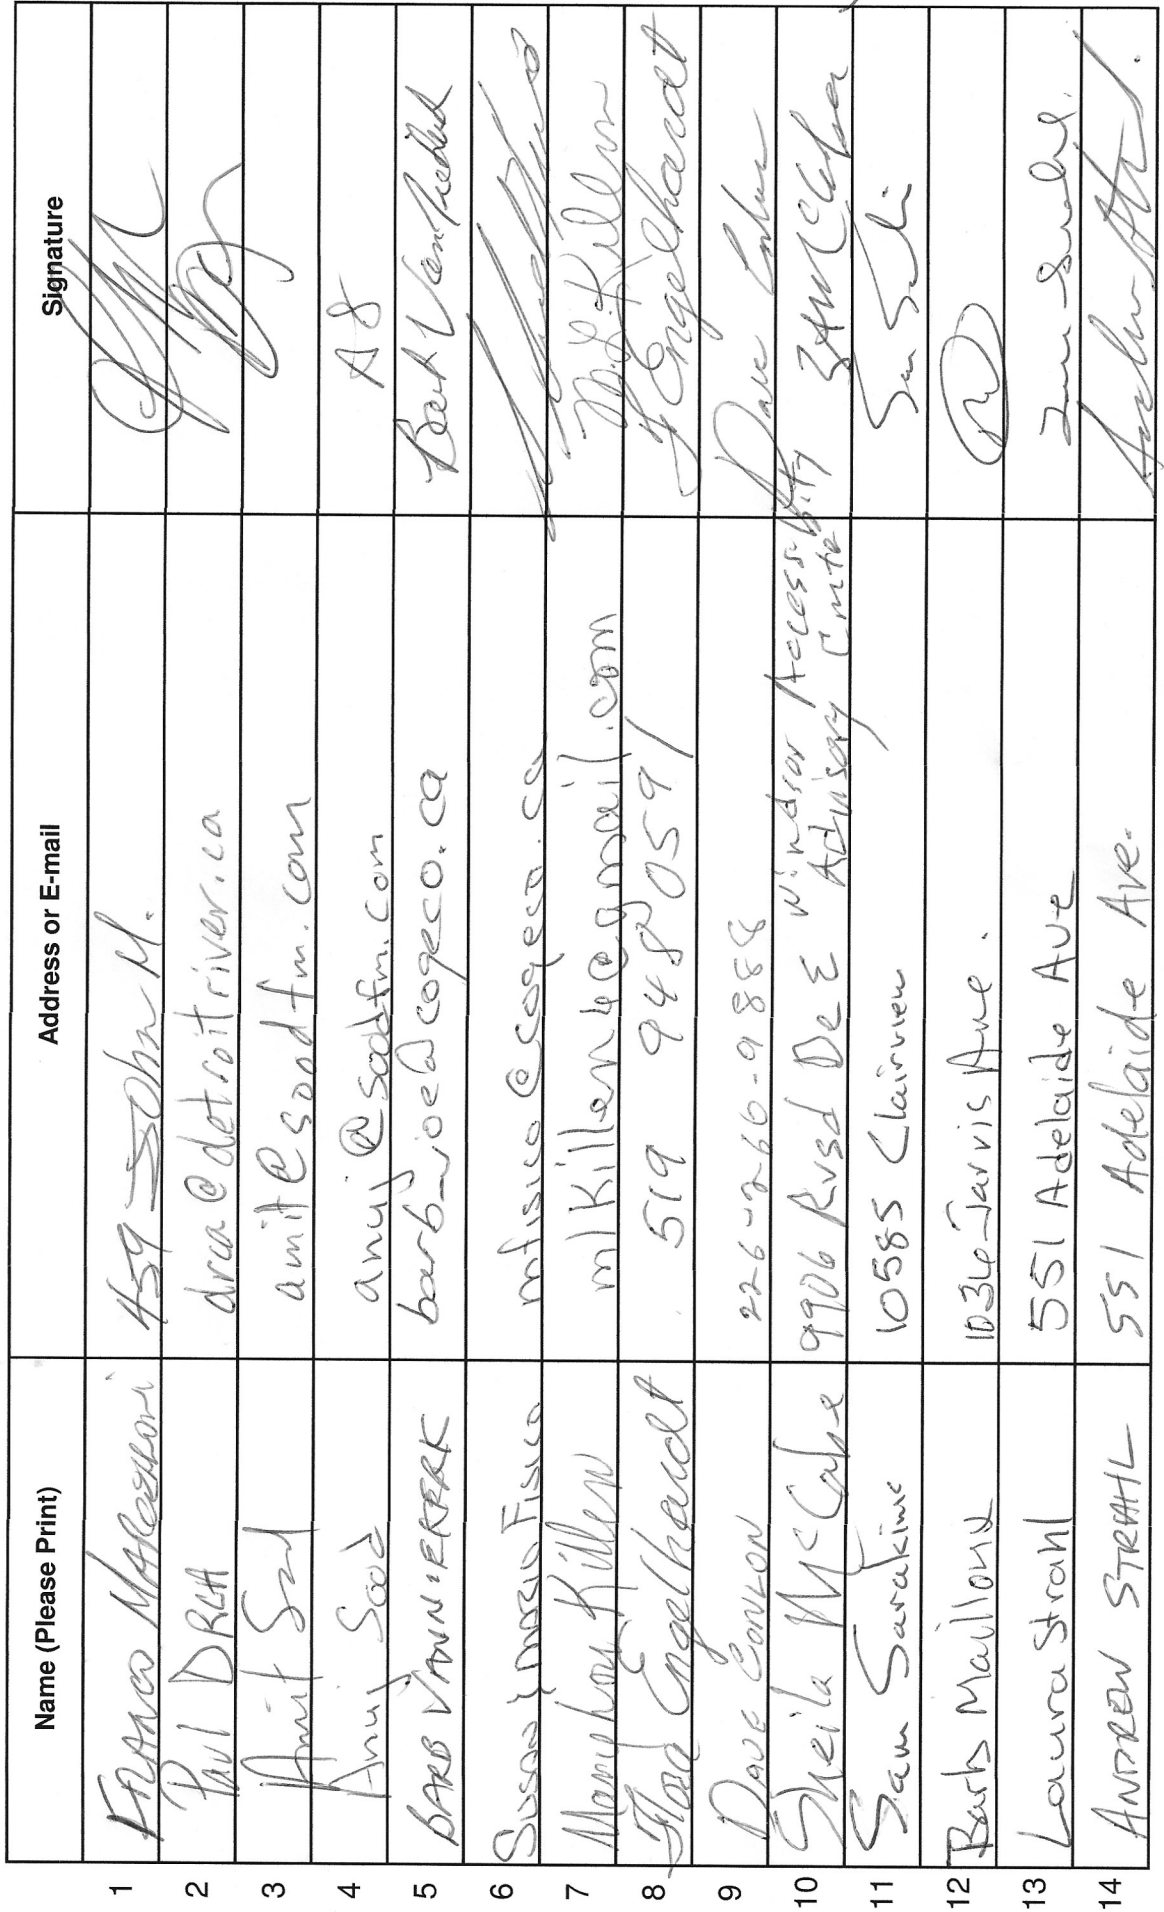 Name (Please Print) Address or E-mail Signature
1 FRANCO 459 John M.
2 Paul DRCA drca@detroitriver.ca
3 Amit Sood amit@soodfm.com
4 Anuj Sood anuj@soodfm.com AS
5 BARB VANNIEKERK barb_joe@cogeco.ca
6 Susan & Mario Fisico mfisico@cogeco.ca
7 Marylou Killen mlkillen4@gmail.com M. L. Killen
8 Flora Engelhardt 519 948 0591 F Engelhardt
9 DAVE CONLON 226-266-9888 Dave Conlon
10 Sheila McCabe 9906 Rvsd Dr E Windsor Accessibility
Advisory Cmte
11 Sam Sarakinic 10585 Clairview
12 Barb Mailloux 1036 Jarvis Ave.
13 Laura Strahl 551 Adelaide Ave
14 ANDREW STRAHL 551 Adelaide Ave.